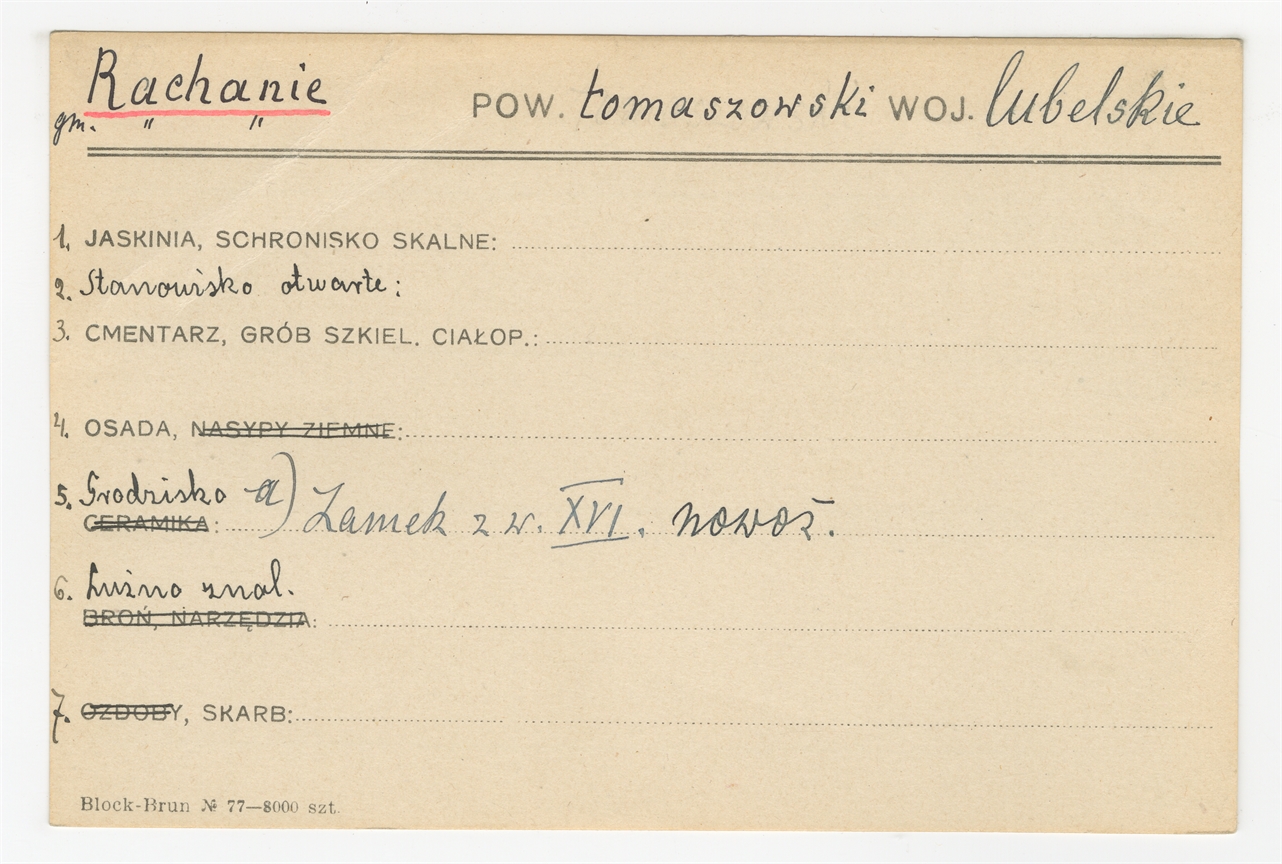 Rachanie POW. tomaszowski WOJ. lubelskie
gm. " "
1. JASKINIA, SCHRONISKO SKALNE:
2. Stanowisko otwarte:
3. CMENTARZ, GRÓB SZKIEL. CIAŁOP.:
4. OSADA, NASYPY ZIEMNE:
5. Grodzisko a) Zamek z w. XVI. nowoż.
CERAMIKA:
6. Luźno znal.
BROŃ, NARZĘDZIA:
7. OZDOBY, SKARB:
Block-Brun № 77—8000 szt.